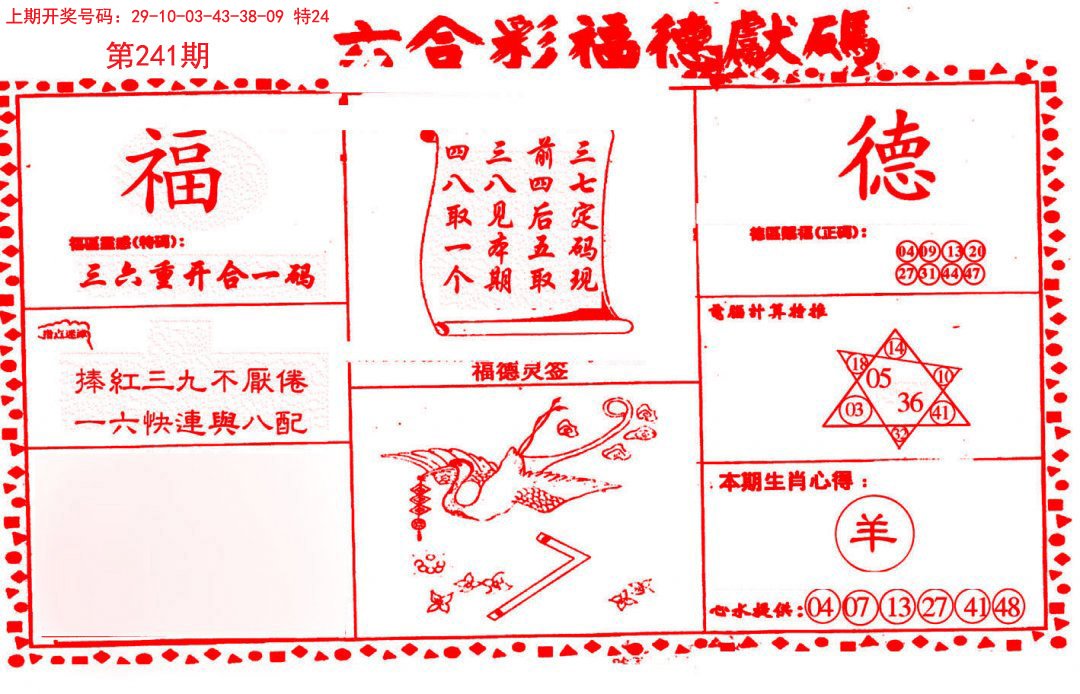 上期开奖号码：29-10-03-43-38-09 特24
第241期
六合彩福德獻碼
福
福區靈感(特碼)：
三六重开合一码
指点迷津
捧紅三九不厭倦
一六快連與八配
三七定码现
前四后五取
三八见本期
四八取一个
福德灵签
德
德區賜福(正碼)：
04 09 13 20
27 31 44 47
電腦計算特推
14
18
10
05
36
03
41
32
本期生肖心得：
羊
心水提供：04 07 13 27 41 48